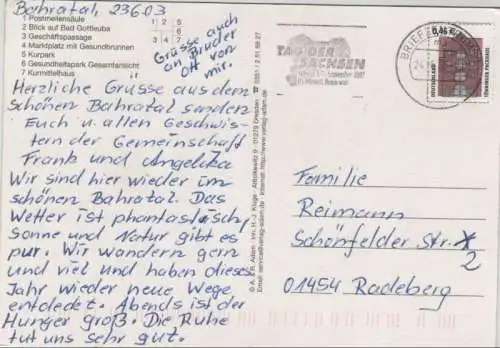 Bahratal, 23.6.03
1 Postmeilensäule
2 Blick auf Bad Gottleuba
3 Geschäftspassage
4 Marktplatz mit Gesundbrunnen
5 Kurpark
6 Gesundheitspark Gesamtansicht
7 Kurmittelhaus
1 2 5
3 4 7
Grüsse auch
an Bruder
Ott von
mir.
Herzliche Grüsse aus dem
schönen Bahratal senden
Euch u. allen Geschwis-
tern der Gemeinschaft
Frank und Angelika
Wir sind hier wieder im
schönen Bahratal. Das
Wetter ist phantastisch,
Sonne und Natur gibt es
pur. Wir wandern gern
und viel und haben dieses
Jahr wieder neue Wege
entdeckt. Abends ist der
Hunger groß. Die Ruhe
tut uns sehr gut.
TAG DER
SACHSEN
Familie
Reimann
Schönfelder Str.
2
01454 Radeberg